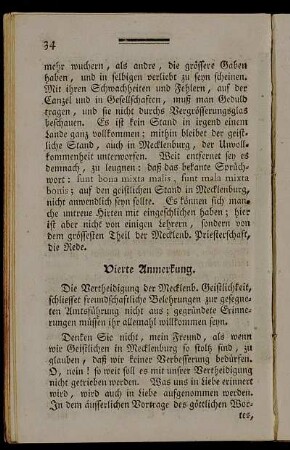 34
mehr wuchern, als andre, die grössere Gaben
haben, und in selbigen verliebt zu seyn scheinen.
Mit ihren Schwachheiten und Fehlern, auf der
Canzel und in Gesellschaften, muß man Geduld
tragen, und sie nicht durchs Vergrösserungsglas
beschauen. Es ist kein Stand in irgend einem
Lande ganz vollkommen; mithin bleibet der geist-
liche Stand, auch in Mecklenburg, der Unvoll-
kommenheit unterworfen. Weit entfernet sey es
demnach, zu leugnen: daß das bekante Sprüch-
wort: sunt bona mixta malis, sunt mala mixta
bonis; auf den geistlichen Stand in Mecklenburg,
nicht anwendlich seyn sollte. Es können sich man-
che untreue Hirten mit eingeschlichen haben; hier
ist aber nicht von einigen Lehrern, sondern von
dem grössesten Theil der Mecklenb. Priesterschaft,
die Rede.
Vierte Anmerkung.
Die Vertheidigung der Mecklenb. Geistlichkeit,
schliesset freundschaftliche Belehrungen zur gesegne-
ten Amtsführung nicht aus; gegründete Erinne-
rungen müssen ihr allemahl willkommen seyn.
Denken Sie nicht, mein Freund, als wenn
wir Geistlichen in Mecklenburg so stolz sind, zu
glauben, daß wir keiner Verbesserung bedürfen.
O, nein! so weit soll es mit unsrer Vertheidigung
nicht getrieben werden. Was uns in Liebe erinnert
wird, wird auch in Liebe aufgenommen werden.
In dem äusserlichen Vortrage des göttlichen Wor-
tes,